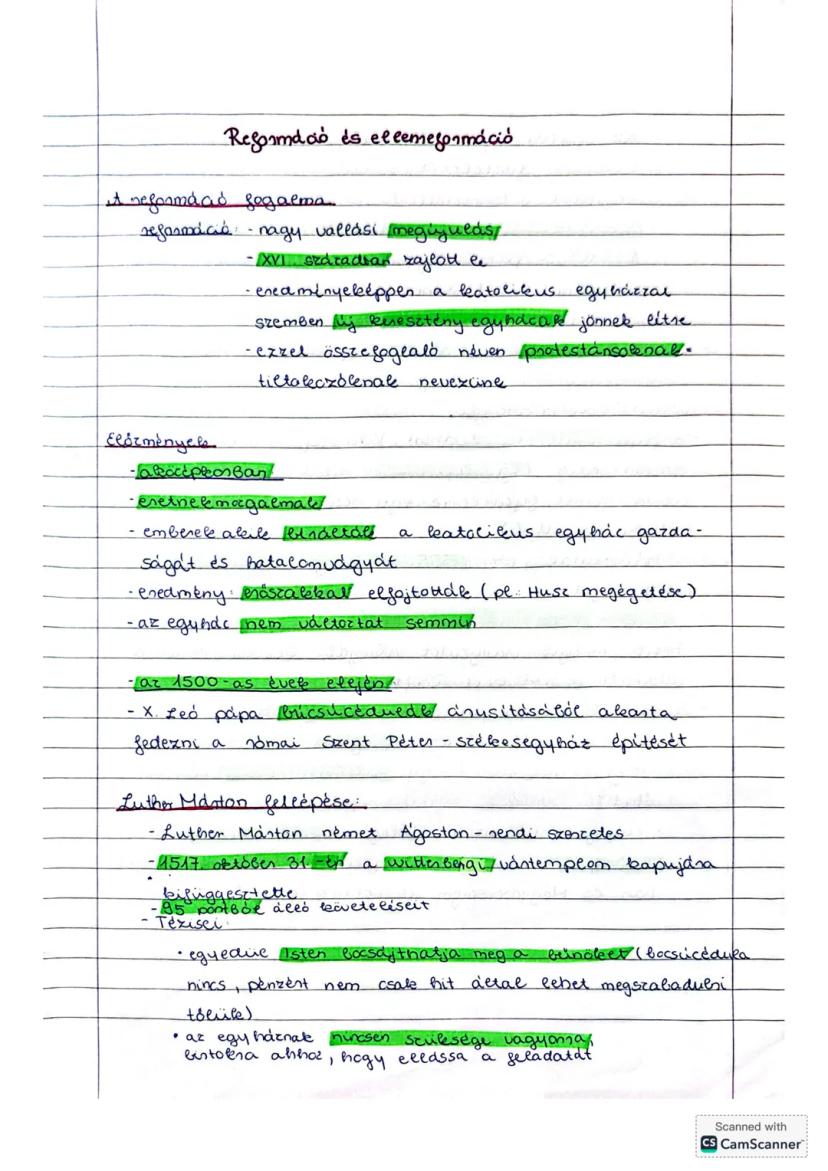 Reformáció és ellenreformáció
A reformáció fogalma
reformáció: - nagy vallási megújulás
- XVI. században zajlott le
- eredményeképpen a katolikus egyházzal
szemben új keresztény egyházak jönnek létre
- ezzel összefoglaló néven protestánsoknak-
tiltakozóknak nevezünk
Előzmények
- a középkorban
- eretnekmozgalmak
- emberek akik bírálták a katolikus egyház gazda-
ságát és hatalomvágyát
- eredmény: erőszakkal elfojtották (pl.: Husz megégetése)
- az egyház nem változtat semmin
- az 1500-as évek elején
- X. Leó pápa búcsúcédulák árusításából akarta
fedezni a római Szent Péter - székesegyház építését
Luther Márton fellépése:
- Luther Márton német Ágoston - rendi szerzetes
- 1517. október 31.-én a wittenbergi vártemplom kapujára
kifüggesztette
- 95 pontból álló követeléseit
- Tézisei:
• egyedül Isten bocsájthatja meg a bűnöket (bocsúcédula
nincs, pénzért nem csak hit által lehet megszabadulni
tőlük)
• az egyháznak nincsen szüksége vagyonra,
birtokra ahhoz, hogy ellássa a feladatát
Scanned with
CS CamScanner